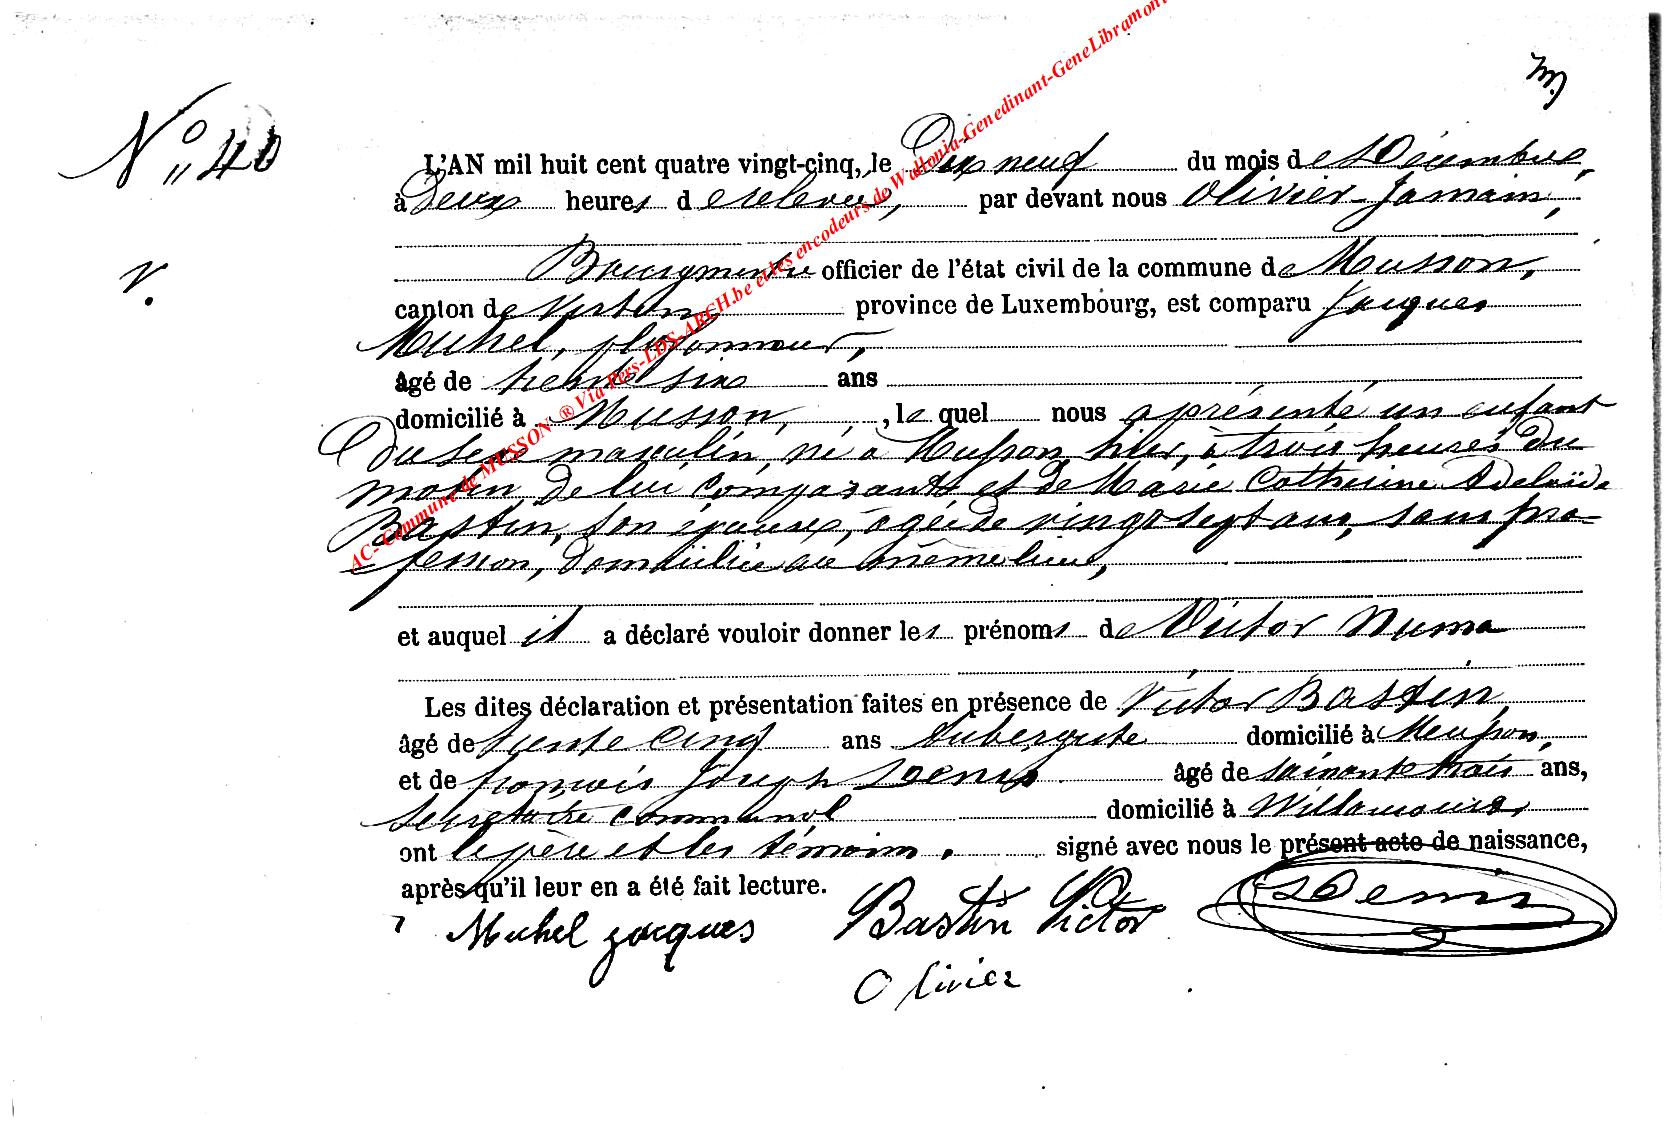 m
N° 40
L'AN mil huit cent quatre vingt-cinq, le Dix neuf du mois de Décembre,
à Deux heures de relevée, par devant nous Olivier Jamain,
v.
Bourgmestre officier de l'état civil de la commune de Musson,
canton de Virton province de Luxembourg, est comparu Jacques
Michel, plafonneur,
âgé de trente six ans
domicilié à Musson, , le quel nous a présenté un enfant
Du sexe masculin, né à Musson, hier, à trois heures Du
matin, De lui comparant et de Marie Catherine Adelaïde
Bastin, son épouse, âgée de vingt sept ans, sans pro-
fession, domiciliée au même lieu,
et auquel il a déclaré vouloir donner les prénoms de Victor Numa
Les dites déclaration et présentation faites en présence de Victor Bastin,
âgé de trente cinq ans Aubergiste domicilié à Musson,
et de françois Joseph Denis âgé de soixante trois ans,
secrétaire communal domicilié à Willancourt,
ont le père et les témoins. signé avec nous le présent acte de naissance,
après qu'il leur en a été fait lecture.
Michel jacques Bastin Victor Denis
Olivier
AC- Commune de MUSSON ® Via Pers-LDS-ARCH.be et les encodeurs de Wallonia-Genedinant-GeneLibramont